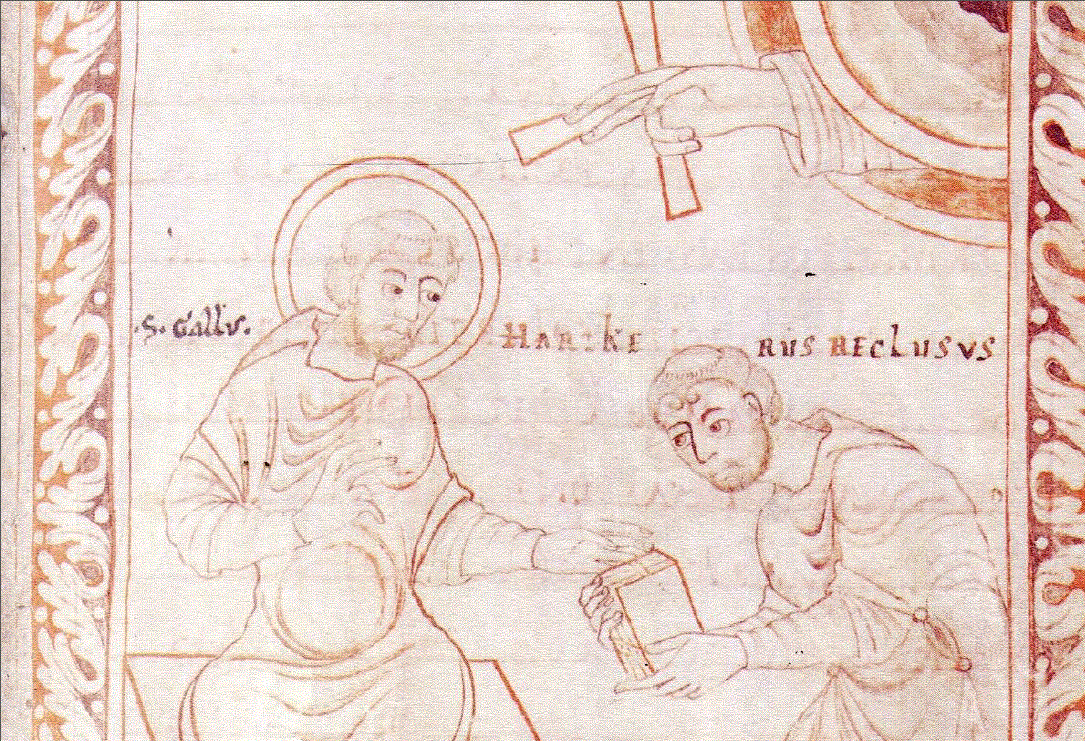 ·S· Gallus·
HARTKE RUS RECLUSVS